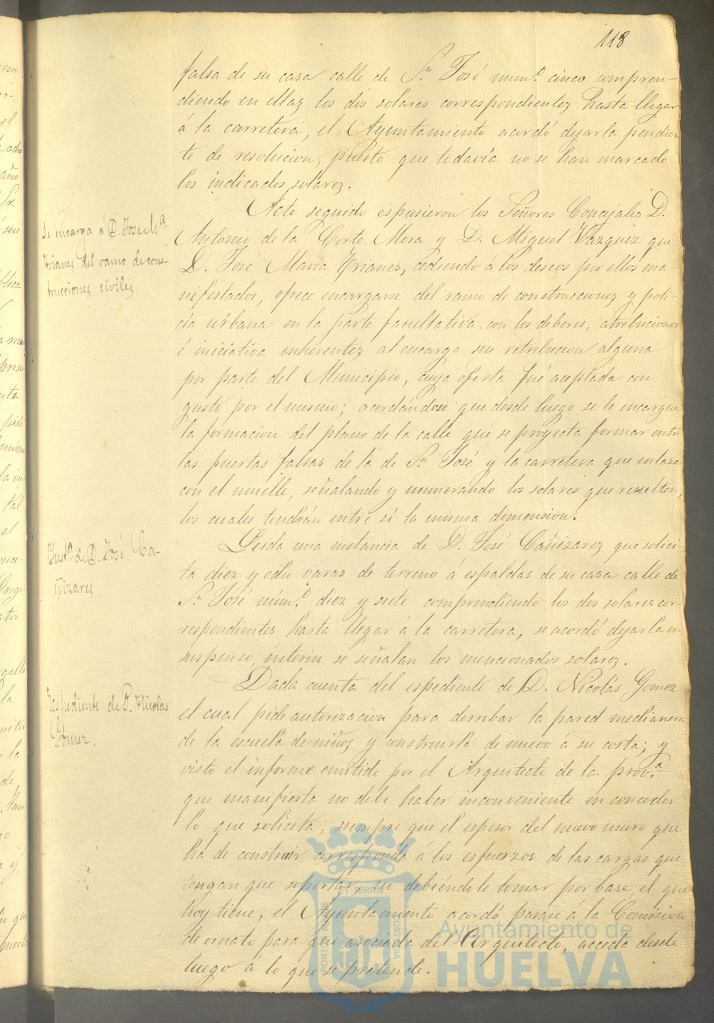 118
falsa de su casa calle de Sn. José núm.o cinco compren-
diendo en ellas los dos solares correspondientes hasta llegar
á la carretera, el Ayuntamiento acordó dejarla pendien-
te de resolucion, puesto que todavía no se han marcado
los indicados solares.
Se encarga á D. José M.a
Trianes del ramo de cons-
trucciones civiles
Acto seguido espusieron los Señores Concejales D.
Antonio de la Corte Mora y D. Miguel Vazquez que
D. José María Trianes, cediendo á los deseos por ellos ma-
nifestados, ofrece encargarse del ramo de construcciones y poli-
cía urbana en la parte facultativa con los deberes, atribuciones
é iniciativa inherentes al encargo sin retribucion alguna
por parte del Municipio, cuya oferta fué aceptada con
gusto por el mismo; acordándose que desde luego se le encargue
la formacion del plano de la calle que se proyecta formar entre
las puertas falsas de la de Sn. José y la carretera que enlaza
con el muelle, señalando y numerando los solares que resulten,
los cuales tendrán entre sí la misma dimension.
Inst.a de D. José Ca-
ñizares
Leida una instancia de D. José Cañizares que solici-
ta diez y ocho varas de terreno á espaldas de su casa calle de
Sn. José núm.o diez y siete comprendiendo los dos solares cor-
respondientes hasta llegar á la carretera, se acordó dejarla en
suspenso, interin se señalan los mencionados solares.
Espediente de D. Nicolas
Gómez.
Dada cuenta del espediente de D. Nicolás Gomez
el cual pide autorizacion para derribar la pared medianera
de la escuela de niños y construirla de nuevo á su costa; y
visto el informe emitido por el Arquitecto de la prov.a
que manifiesta no debe haber inconveniente en conceder
lo que solicita, siempre que el espesor del nuevo muro que
ha de construir corresponda á los esfuerzos de las cargas que
tengan que soportar, no debiéndole tomar por base el que
hoy tiene, el Ayuntamiento acordó pasase á la Comision
de ornato para que asociada del Arquitecto, acceda desde
luego á lo que se pretende.
Ayuntamiento de
HUELVA